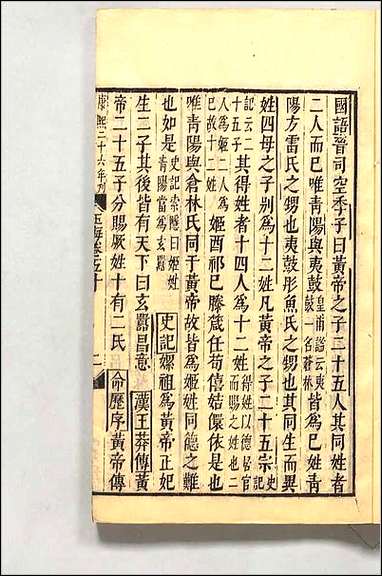 國語晉司空季子曰黃帝之子二十五人其同姓者
二人而已唯青陽與夷鼓皇甫謐云夷鼓一名蒼林皆爲巳姓青
陽方雷氏之甥也夷鼓彤魚氏之甥也其同生而異
姓四母之子別爲十二姓凡黃帝之子二十五宗史記
記云二十五子其得姓者十四人爲十二姓得姓以德居官而賜之姓也二
人爲姬二人爲巳故十二姓姬酉祁巳滕箴任荀僖姞儇依是也
唯青陽與倉林氏同于黃帝故皆爲姬姓同德之難
也如是史記索隱曰姬姓青陽當爲玄囂史記嫘祖爲黃帝正妃
生二子其後皆有天下曰玄囂昌意漢王莽傳黃
帝二十五子分賜厥姓十有二氏命歷序黃帝傳
康熙二十六年刊
玉海卷五十
二